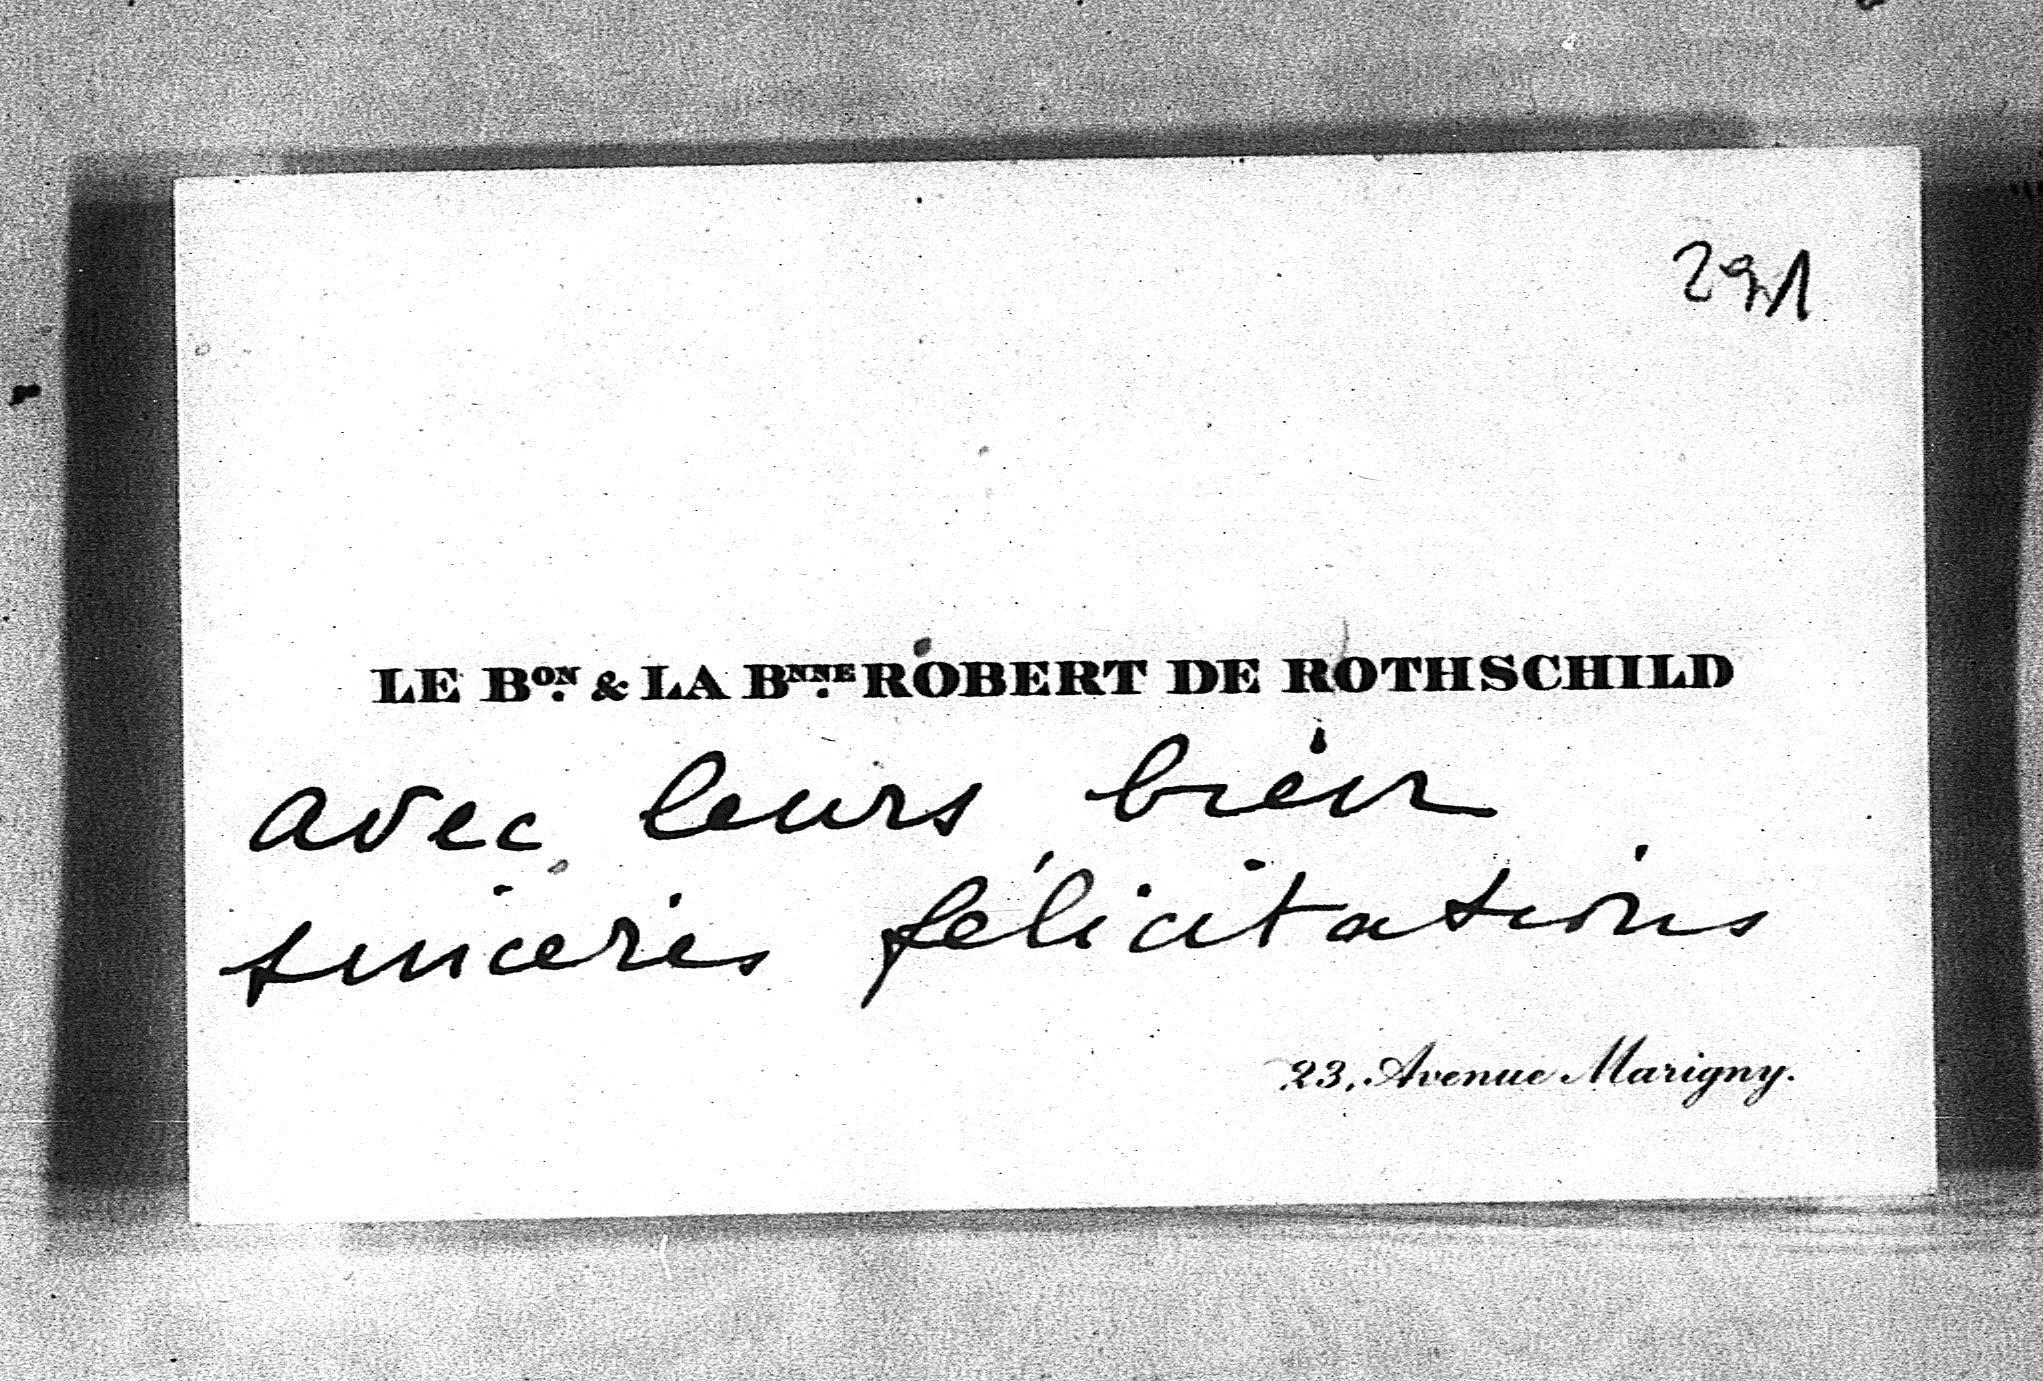 291
LE BON. & LA BNNE. ROBERT DE ROTHSCHILD
avec leurs bien
sincères félicitations
23, Avenue Marigny.